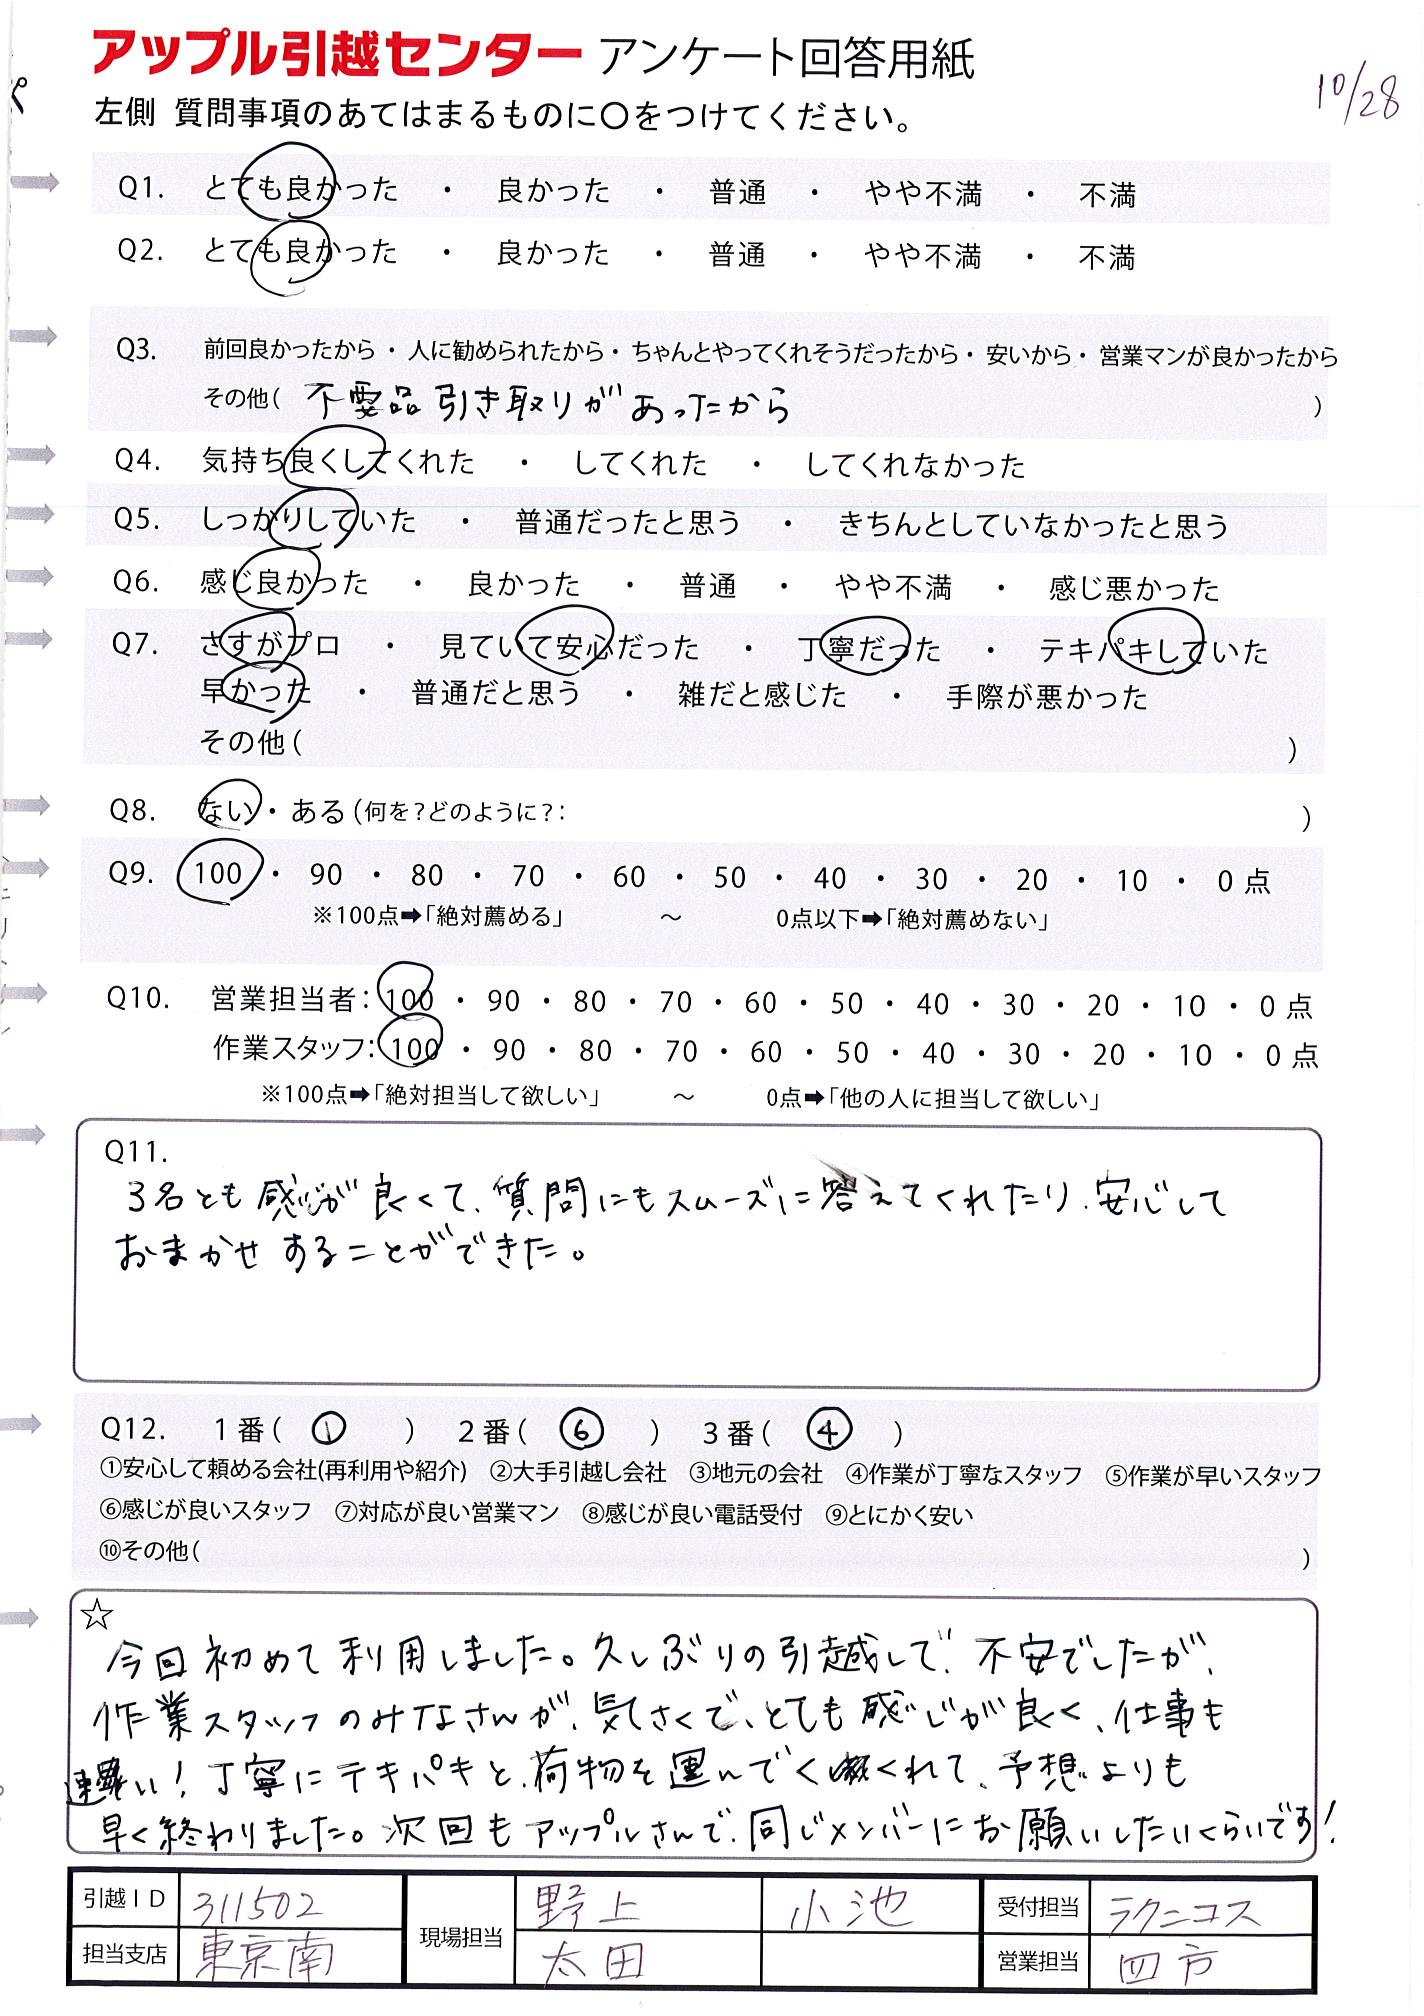 アップル引越センター アンケート回答用紙
10/28
左側 質問事項のあてはまるものに〇をつけてください。
Q1. とても良かった ・ 良かった ・ 普通 ・ やや不満 ・ 不満
Q2. とても良かった ・ 良かった ・ 普通 ・ やや不満 ・ 不満
Q3. 前回良かったから・人に勧められたから・ちゃんとやってくれそうだったから・安いから・営業マンが良かったから
その他( 不要品引き取りがあったから )
Q4. 気持ち良くしてくれた ・ してくれた ・ してくれなかった
Q5. しっかりしていた ・ 普通だったと思う ・ きちんとしていなかったと思う
Q6. 感じ良かった ・ 良かった ・ 普通 ・ やや不満 ・ 感じ悪かった
Q7. さすがプロ ・ 見ていて安心だった ・ 丁寧だった ・ テキパキしていた
早かった ・ 普通だと思う ・ 雑だと感じた ・ 手際が悪かった
その他( )
Q8. ない・ある(何を?どのように?: )
Q9. 100 ・ 90 ・ 80 ・ 70 ・ 60 ・ 50 ・ 40 ・ 30 ・ 20 ・ 10 ・ 0 点
※100点➡「絶対薦める」 ～ 0点以下➡「絶対薦めない」
Q10. 営業担当者: 100 ・ 90 ・ 80 ・ 70 ・ 60 ・ 50 ・ 40 ・ 30 ・ 20 ・ 10 ・ 0 点
作業スタッフ: 100 ・ 90 ・ 80 ・ 70 ・ 60 ・ 50 ・ 40 ・ 30 ・ 20 ・ 10 ・ 0 点
※100点➡「絶対担当して欲しい」 ～ 0点➡「他の人に担当して欲しい」
Q11.
3名とも感じが良くて、質問にもスムーズに答えてくれたり、安心して
おまかせすることができた。
Q12. 1番( ① ) 2番( ⑥ ) 3番( ④ )
①安心して頼める会社(再利用や紹介) ②大手引越し会社 ③地元の会社 ④作業が丁寧なスタッフ ⑤作業が早いスタッフ
⑥感じが良いスタッフ ⑦対応が良い営業マン ⑧感じが良い電話受付 ⑨とにかく安い
⑩その他( )
☆
今回初めて利用しました。久しぶりの引越しで、不安でしたが、
作業スタッフのみなさんが、気さくで、とても感じが良く、仕事も
速い！丁寧にテキパキと、荷物を運んでくくれて、予想よりも
早く終わりました。次回もアップルさんで、同じメンバーにお願いしたいくらいです！
引越ID 311502 現場担当 野上 小池 受付担当 ラクニコス
担当支店 東京南 太田 営業担当 四方